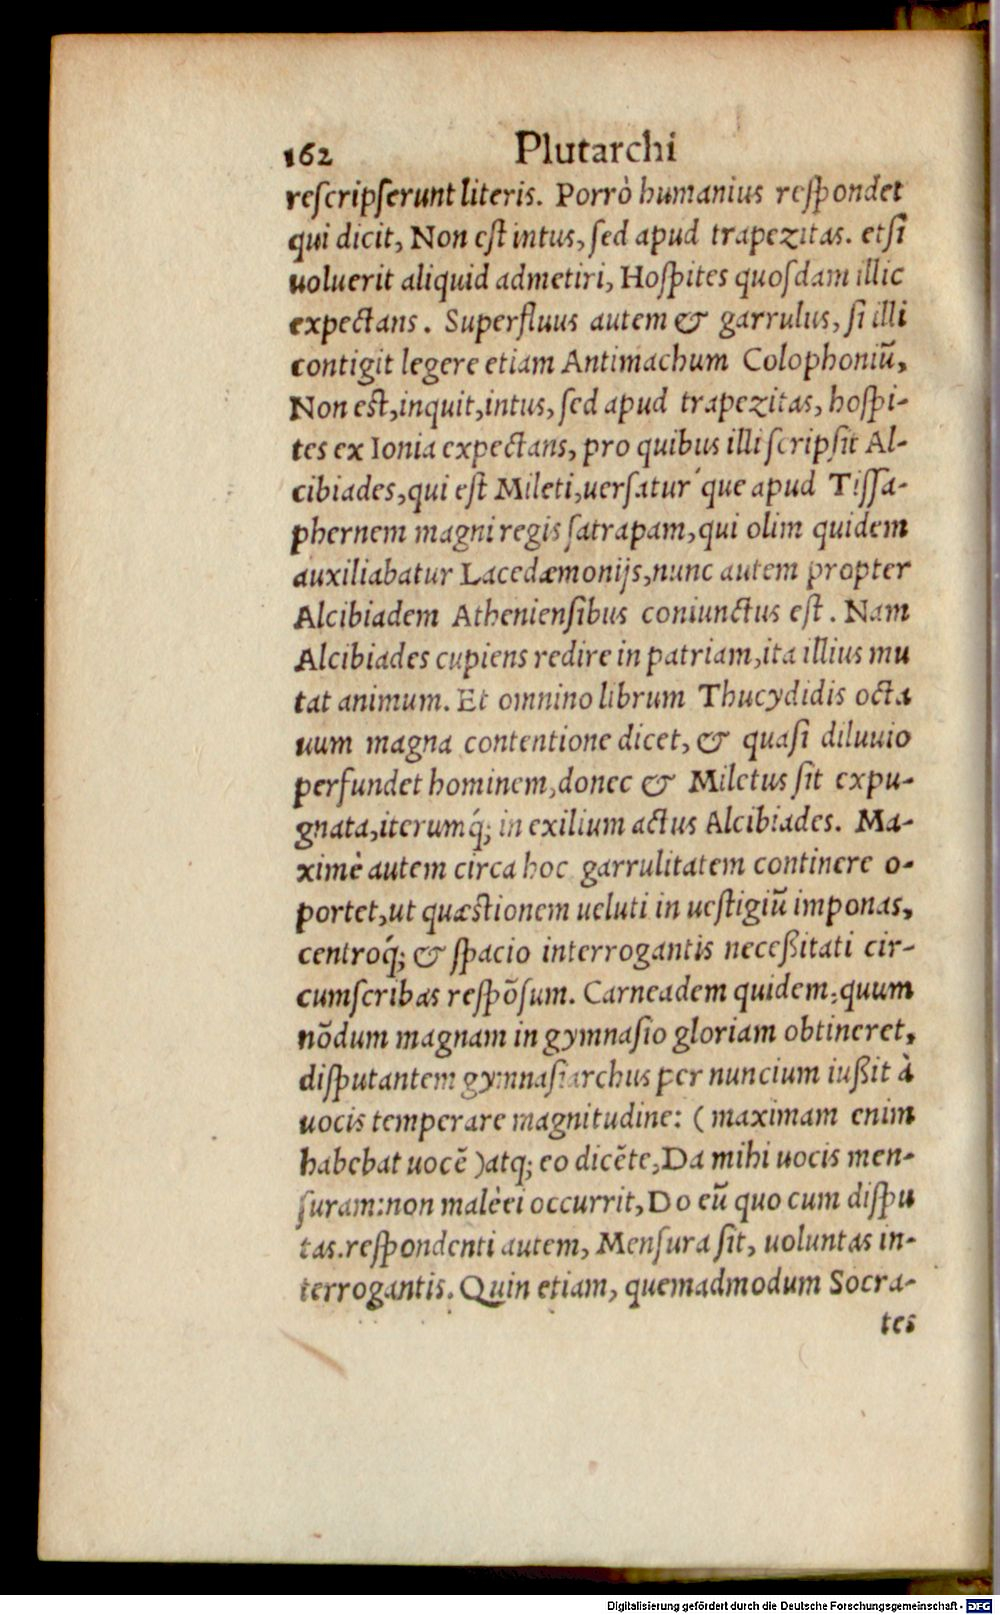 162 Plutarchi
reſcripſerunt literis. Porrò humanius reſpondet
qui dicit, Non eſt intus, ſed apud trapezitas. etſi
uoluerit aliquid admetiri, Hoſpites quoſdam illic
expectans. Superfluus autem & garrulus, ſi illi
contigit legere etiam Antimachum Colophoniũ,
Non eſt, inquit, intus, ſed apud trapezitas, hoſpi-
tes ex Ionia expectans, pro quibus illi ſcripſit Al-
cibiades, qui eſt Mileti, uerſatur´que apud Tiſſa-
phernem magni regis ſatrapam, qui olim quidem
auxiliabatur Lacedæmonijs, nunc autem propter
Alcibiadem Athenienſibus coniunctus eſt. Nam
Alcibiades cupiens redire in patriam, ita illius mu
tat animum. Et omnino librum Thucydidis octa
uum magna contentione dicet, & quaſi diluuio
perfundet hominem, donec & Miletus ſit expu-
gnata, iterumq́; in exilium actus Alcibiades. Ma-
ximè autem circa hoc garrulitatem continere o-
portet, ut quæſtionem ueluti in ueſtigiũ imponas,
centroq́; & ſpacio interrogantis neceßitati cir-
cumſcribas reſpõſum. Carneadem quidem, quum
nõdum magnam in gymnaſio gloriam obtineret,
diſputantem gymnaſiarchus per nuncium iußit à
uocis temperare magnitudine: (maximam enim
habebat uocẽ) atq; eo dicẽte, Da mihi uocis men-
ſuram: non malè ei occurrit, Do eũ quo cum diſpu
tas. reſpondenti autem, Menſura ſit, uoluntas in-
terrogantis. Quin etiam, quemadmodum Socra-
tes
Digitalisierung gefördert durch die Deutsche Forschungsgemeinschaft - DFG